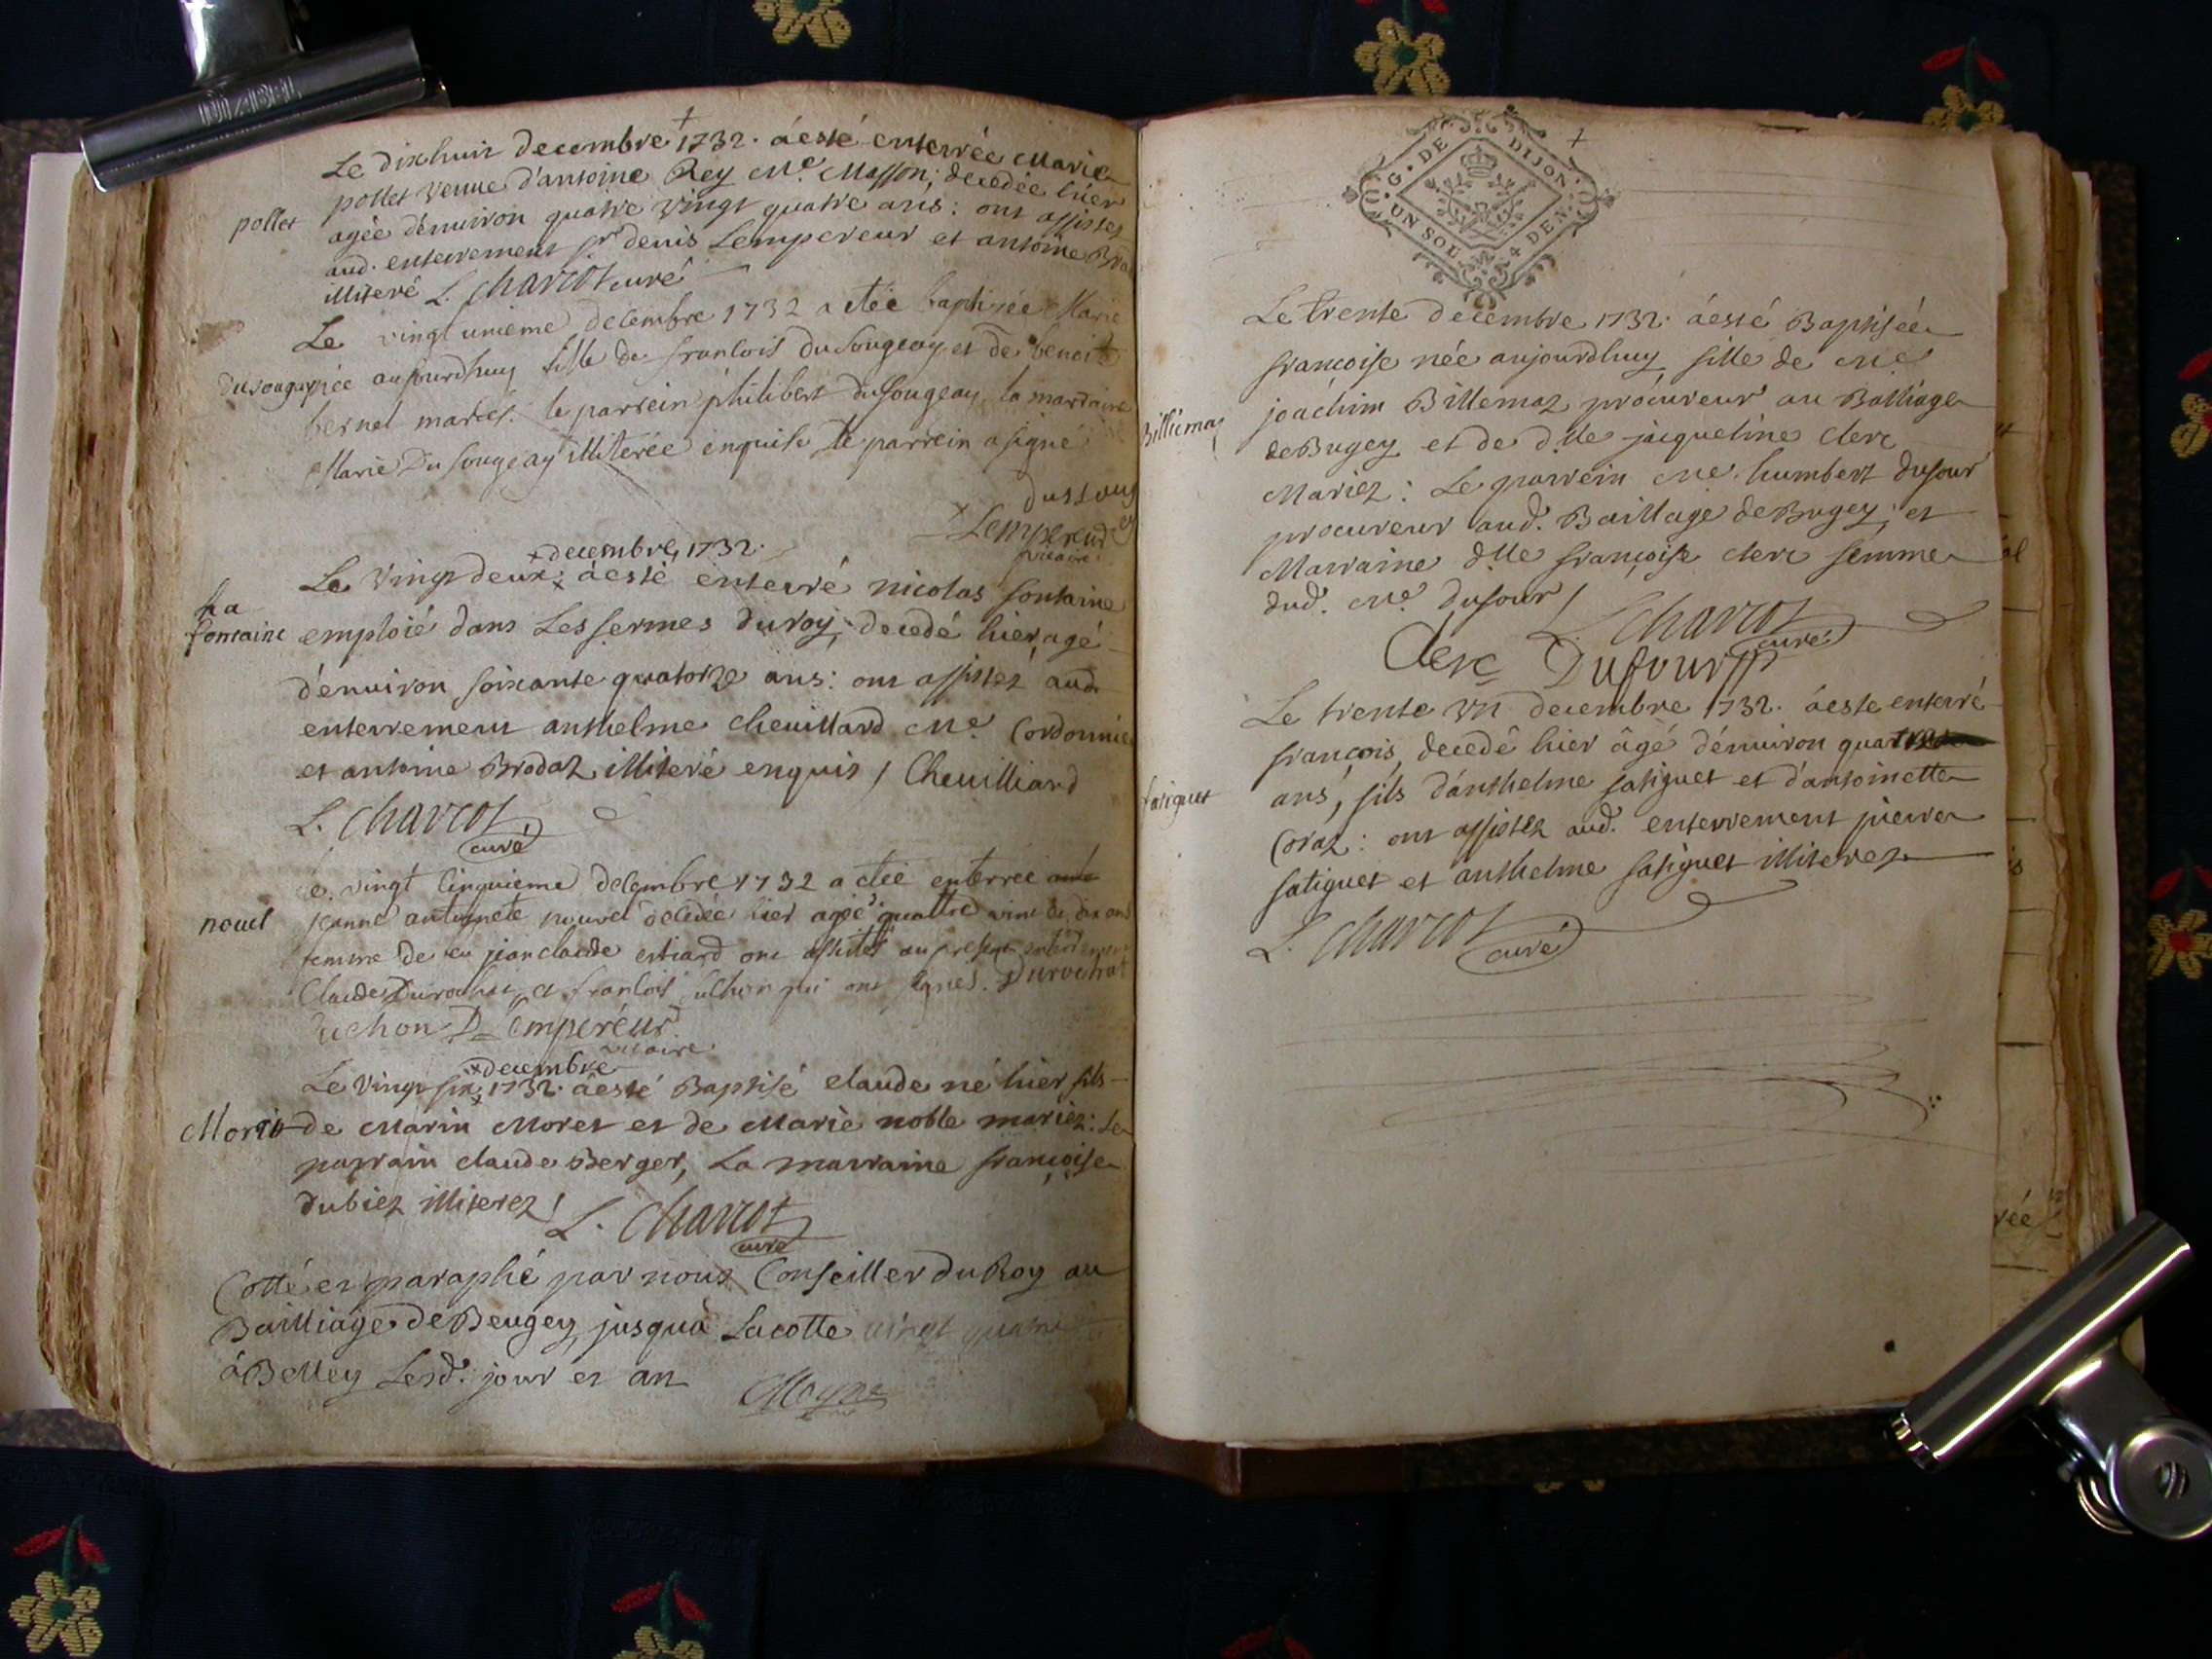 Le dixhuit decembre 1732. á esté enterrée Marie
pollet veuue d'antoine Rey Me. Masson; decedée hier
pollet
agée d'enuiron quatre vingt quatre ans: ont assistez
aud. enterrement sr. denis Lempereur et antoine Bro
illiteré L. Charcot curé
Le vingt unieme decembre 1732 a etée baptisée Marie
dusougey
née aujourdhuy fille de francois du Sougeay et de benoite
bernel mariés. le parrein philibert du Sougeay la marraine
Marie Du Sougeay illiterée enquise le parrein a signé
dussoug
Lempereur
vicaire
+decembre, 1732.
Le vingt deux, á esté enterré nicolas fontaine
La
fontaine
emploié dans Les fermes du roy; decedé hier, agé
d'enuiron soixante quatorze ans: ont assistez aud.
enterrement anthelme cheuillard Me. Cordonnie
et antoine Brodaz illiteré enquis / Cheuilliard
L. Charcot
curé
e. vingt cinquieme decembre 1732 a etée enterrée
nouel
jeanne antoinete nouvel decedée hier agée quattre vint dix ans
femme de feu jean claude ont assistés au present
Claude Durochat et francois juchon qui ont signés. Durochat
juchon Lempereur
vicaire
+decembre
Le vingt six, 1732. á esté Baptisé claude né hier fils
Moret
de Marin Moret et de Marie noble mariez: Le
parrain claude Berger, La marraine françoise
dubiez illiterez / L. Charcot
curé
Cotté et paraphé par nous Conseiller Du Roy au
Bailliage de Beugey jusqua Lacotte vingt quatre
á Belley Lesd. jour et an
Moyne
G. DE DIJON.
UN SOL 4 DEN.
Le trente decembre 1732. á esté Baptisée
francoise née aujourdhuy fille de Me.
Billiemaz
joachim Billemaz procureur au Balliage
de Bugey et de dlle jacqueline clerc
Mariez: Le parrein Me. humbert dufour
procureur aud. Baillage de Bugey; et
Marraine dlle françoise clerc femme
dud. Me. dufour / L. Charcot
curé
Clerc Dufour
Le trente vn decembre 1732. á este enterré
françois, decedé hier âgé d'enuiron quatre
fatiguet
ans, fils d'anthelme fatiguet et d'antoinette
Coraz: ont assistez aud. enterrement pierre
fatiguet et anthelme fatiguet illiterez
L. Charcot
curé